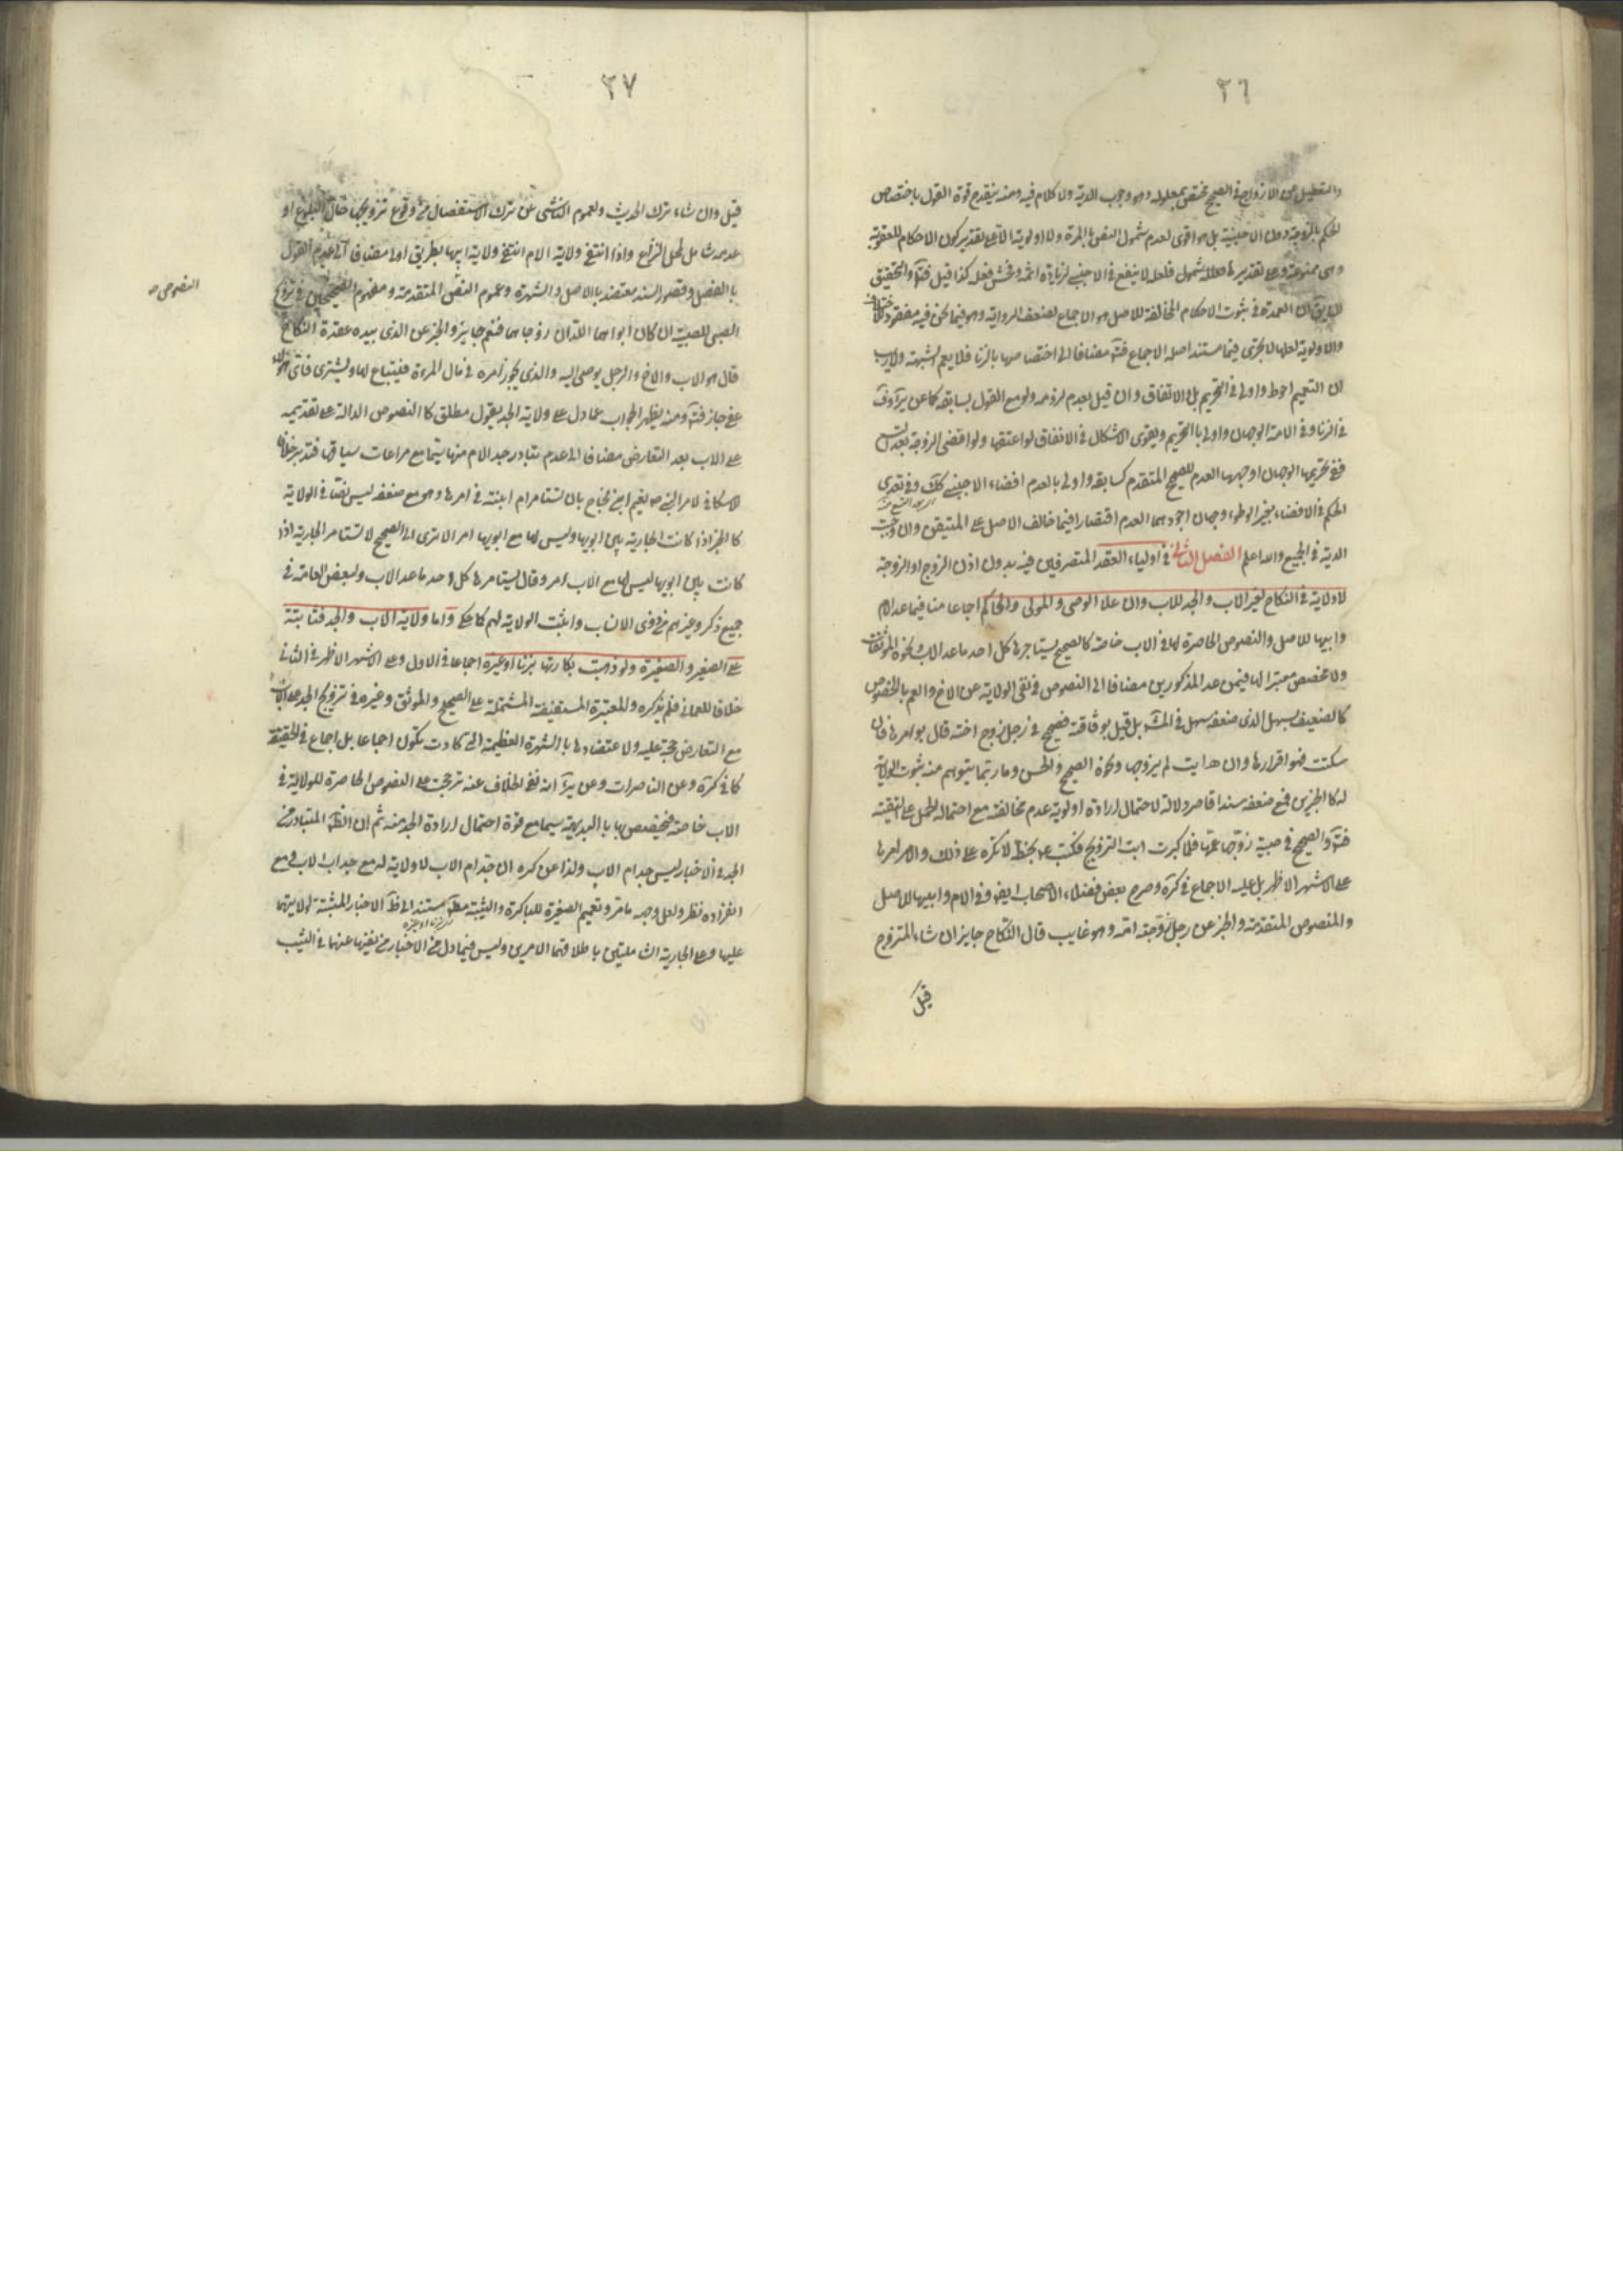 ٣٦
والتعليل عن الازواج في الصحيح مختص بمعلوله وهو وجوب الدية ولا كلام فيه ومنه ينقدح قوة القول باختصاص
الحكم بالزوجة دون الاجنبية بل هو اقوى لعدم شمول النص المرة ولا اولوية الا على تقدير كون الاحكام للعقوبة
وهى ممنوعة وعلى تقديرها فلعله لا ينفع في الاجنبي لزيادة اثمه وفحش فعله كذا قيل فت والتحقيق
ان العمدة في ثبوت الاحكام المخالفة للاصل هو الاجماع لضعف الرواية وهو فيما نحن فيه مفقود
والاولوية لعلها لا تجرى فيما مستند اصله الاجماع فت مضافا الى اختصاصها بالزنا فلا يعم الشبهة ولا ريب
ان التعميم احوط واولى في التحريم بل والانفاق وان قيل بعدم لزومه ولو مع القول بسابقه كما عن
في الزنا وفي الامة الوجهان واولى بالتحريم ويقوى الاشكال في الانفاق لو اعتقها ولو افضى الزوجة بعد التسع
ففي تحريمها الوجهان اوجهها العدم للصحيح المتقدم كسابقه واولى بالعدم افضاء الاجنبي كك وفي تعدى
الحكم في الافضاء بغير الوطء وجهان اجودهما العدم اقتصارا فيما خالف الاصل على المتيقن وان وجبت
الدية في الجميع والله اعلم الفصل الثانى في اولياء العقد المتصرفين فيه بدون اذن الزوج او الزوجة
لا ولاية في النكاح لغير الاب والجد للاب وان علا الوصى والمولى والحاكم اجماعا منا فيما عدا الام
وابيها للاصل والنصوص الحاصرة لها في الاب خاصة كالصحيح يستاجرها كل احد ما عدا الاب نحوه الموثقات
ولا مخصص معتبرا لها فيمن عد المذكورين مضافا الى النصوص في نفى الولاية عن الاخ والعم بالخصوص
كالضعيف بسهل الذى ضعفه سهل في المش بل قيل بوثاقته فصحيح في رجل زوج اخته قال يوامرها فان
سكتت فهو اقرارها وان هى ابت لم يزوجها ونحوه الصحيح والحسن وما ربما يتوهم منه ثبوت الولاية
له كا الخبرين فمع ضعفه سندا قاصر دلالة لاحتمال ارادة اولوية عدم مخالفته مع احتماله الحمل على التقية
فت والصحيح في صبية زوجها عمها فلما كبرت ابت التزويج فكتب ع بخط لا تكره على ذلك والامر امرها
على الاشهر الاظهر بل عليه الاجماع في كرة وصرح بعض فضلاء الاصحاب ايض وفي الام وابيها للاصل
والنصوص المتقدمة والخبر عن رجل زوجته امه وهو غايب قال النكاح جايز ان شاء المتزوج
قبل
٣٧
قبل وان شاء ترك الحديث ولعموم الناشى عن ترك الاستفصال من وقوع تزويجها حال البلوغ او
عدمه شامل لمحل النزاع واذا انتفى ولاية الام انتفى ولاية ابيها بطريق اولى مضافا الى عدم القول
بالفصل وقصور السند معتضد بالاصل والشهرة وعموم النص المتقدمة ومفهوم الصحيحين في تزويج
النصوص ص
الصبى للصبية ان كان ابواهما اللذان زوجاهما فنعم جايز والخبر عن الذى بيده عقدة النكاح
قال هو الاب والاخ والرجل يوصى اليه والذى يجوز امره في مال المراة فيبتاع لها ويشترى فاى هؤلاء
عفى جاز فت ومنه يظهر الجواب عما دل على ولاية الجد بقول مطلق كا النصوص الدالة على تقديمه
على الاب بعد التعارض مضافا الى عدم تبادر جد الام منها سيما مع مراعات سياقها فتدبر خلافا
للاسكافى لامر النبى ص نعيم ابن نحاح بان تستامر ام ابنته في امرها وهو مع ضعفه ليس نصا في الولاية
كا الخبر اذا كانت الجارية بين ابويها وليس لها مع ابويها امر الا ترى الى الصحيح لا تستامر الجارية اذا
كانت بين ابويها ليس لها مع الاب امر وقال يستامرها كل احد ما عدا الاب ولبعض العامة في
جميع ذكر وغيرهم من ذوى الانساب واثبت الولاية لهم كا حكى واما ولاية الاب والجد فثابتة
على الصغير والصغيرة ولو ذهبت بكارتها بزنا او غيره اجماعا في الاول وعلى الاشهر الاظهر في الثانى
خلافا للعمانى فلم يذكره والمعتبرة المستفيضة المشتملة على الصحيح والموثق وغيره في تزويج الجد على الاب
مع التعارض حجة عليه ولاعتضادها بالشهرة العظيمة التى كادت تكون اجماعا بل اجماع في الحقيقة
كا في كرة وعن الناصرات وعن ئر انه نفى الخلاف عنه ترجحت على النصوص الحاصرة للولاية في
الاب خاصة فتخصيص بها بالبديهة سيما مع قوة احتمال ارادة الجد منه ثم ان الظ المتبادر من
الجد في الاخبار ليس جد ام الاب ولذا عن كره ان جد ام الاب لا ولاية له مع جد اب الاب و مع
انفراده نظر ولعل وجهه ما مر وتعميم الصغيرة للباكرة والثيبة مط مستند الى ظ الاخبار المثبتة لولايتهما
عليها وعلى الجارية الشاملتين باطلاقهما الامرين وليس فيما دل من الاخبار من نفيها عنها في الثيب